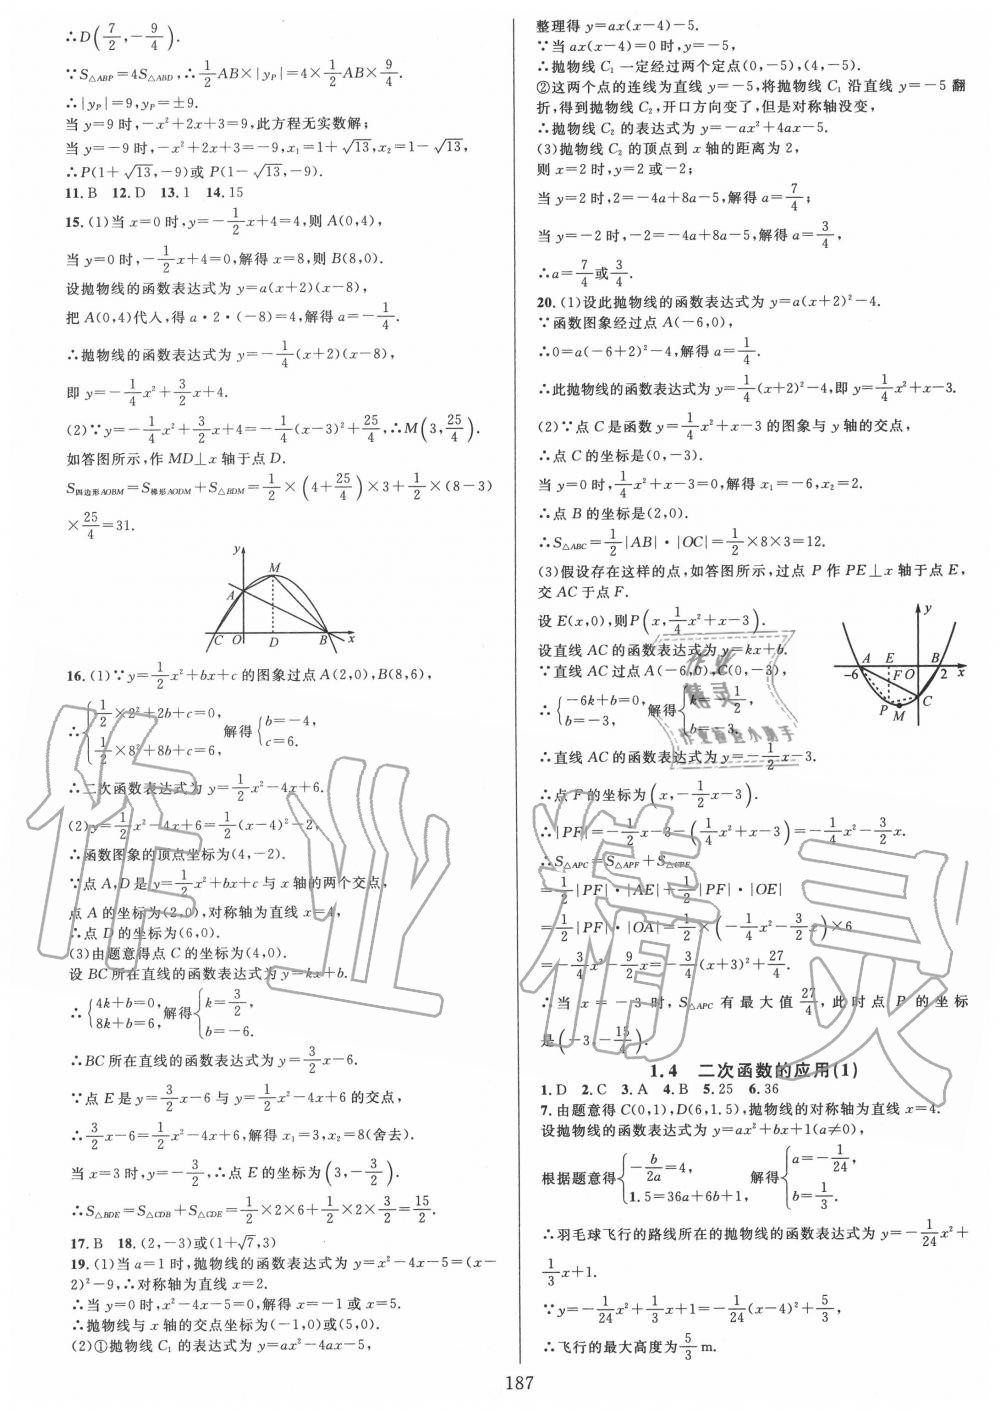 ∴D(7/2,-9/4).
∵S△ABP=4S△ABD,∴1/2AB×|yP|=4×1/2AB×9/4.
∴|yP|=9,yP=±9.
当 y=9 时,-x²+2x+3=9,此方程无实数解;
当 y=-9 时,-x²+2x+3=-9,x₁=1+√13,x₂=1-√13,
∴P(1+√13,-9)或 P(1-√13,-9).
11.B 12.D 13.1 14.15
15.(1)当 x=0 时,y=-1/2x+4=4,则 A(0,4),
当 y=0 时,-1/2x+4=0,解得 x=8,则 B(8,0).
设抛物线的函数表达式为 y=a(x+2)(x-8),
把 A(0,4)代人,得 a·2·(-8)=4,解得 a=-1/4.
∴抛物线的函数表达式为 y=-1/4(x+2)(x-8),
即 y=-1/4x²+3/2x+4.
(2)∵y=-1/4x²+3/2x+4=-1/4(x-3)²+25/4,∴M(3,25/4).
如答图所示,作 MD⊥x 轴于点 D.
S四边形AOBM=S梯形AODM+S△BDM=1/2×(4+25/4)×3+1/2×(8-3)
×25/4=31.
y
M
A
C O D B x
16.(1)∵y=1/2x²+bx+c 的图象过点 A(2,0),B(8,6),
∴{1/2×2²+2b+c=0, 1/2×8²+8b+c=6, 解得{b=-4, c=6.
∴二次函数表达式为 y=1/2x²-4x+6.
(2)y=1/2x²-4x+6=1/2(x-4)²-2,
∴函数图象的顶点坐标为(4,-2).
∵点 A,D 是 y=1/2x²+bx+c 与 x 轴的两个交点,
点 A 的坐标为(2,0),对称轴为直线 x=4,
∴点 D 的坐标为(6,0).
(3)由题意得点 C 的坐标为(4,0).
设 BC 所在直线的函数表达式为 y=kx+b.
∴{4k+b=0, 8k+b=6, 解得{k=3/2, b=-6.
∴BC 所在直线的函数表达式为 y=3/2x-6.
∵点 E 是 y=3/2x-6 与 y=1/2x²-4x+6 的交点,
∴3/2x-6=1/2x²-4x+6,解得 x₁=3,x₂=8(舍去).
当 x=3 时,y=-3/2,∴点 E 的坐标为(3,-3/2).
∴S△BDE=S△CDB+S△CDE=1/2×2×6+1/2×2×3/2=15/2.
17.B 18.(2,-3)或(1+√7,3)
19.(1)当 a=1 时,抛物线的函数表达式为 y=x²-4x-5=(x-
2)²-9,∴对称轴为直线 x=2.
∴当 y=0 时,x²-4x-5=0,解得 x=-1或 x=5.
∴抛物线与 x 轴的交点坐标为(-1,0)或(5,0).
(2)①抛物线 C₁ 的表达式为 y=ax²-4ax-5,
整理得 y=ax(x-4)-5.
∵当 ax(x-4)=0 时,y=-5,
∴抛物线 C₁ 一定经过两个定点(0,-5),(4,-5).
②这两个点的连线为直线 y=-5,将抛物线 C₁ 沿直线 y=-5 翻
折,得到抛物线 C₂,开口方向变了,但是对称轴没变,
∴抛物线 C₂ 的表达式为 y=-ax²+4ax-5.
(3)抛物线 C₂ 的顶点到 x 轴的距离为 2,
则 x=2 时,y=2 或-2;
当 y=2 时,2=-4a+8a-5,解得 a=7/4;
当 y=-2 时,-2=-4a+8a-5,解得 a=3/4,
∴a=7/4或3/4.
20.(1)设此抛物线的函数表达式为 y=a(x+2)²-4.
∵函数图象经过点 A(-6,0),
∴0=a(-6+2)²-4,解得 a=1/4.
∴此抛物线的函数表达式为 y=1/4(x+2)²-4,即 y=1/4x²+x-3.
(2)∵点 C 是函数 y=1/4x²+x-3 的图象与 y 轴的交点,
∴点 C 的坐标是(0,-3).
当 y=0 时,1/4x²+x-3=0,解得 x₁=-6,x₂=2.
∴点 B 的坐标是(2,0).
∴S△ABC=1/2|AB|·|OC|=1/2×8×3=12.
(3)假设存在这样的点,如答图所示,过点 P 作 PE⊥x 轴于点 E,
交 AC 于点 F.
设 E(x,0),则P(x,1/4x²+x-3).
设直线 AC 的函数表达式为 y=kx+b.
∵直线 AC 过点 A(-6,0),C(0,-3),
∴{-6k+b=0, b=-3, 解得{k=-1/2, b=-3.
∴直线 AC 的函数表达式为 y=-1/2x-3.
y
A E B
-6 F O 2 x
P C
M
∴点 F 的坐标为(x,-1/2x-3).
∴|PF|=-1/2x-3-(1/4x²+x-3)=-1/4x²-3/2x.
∴S△APC=S△APF+S△CPF
=1/2|PF|·|AE|+1/2|PF|·|OE|
=1/2|PF|·|OA|=1/2×(-1/4x²-3/2x)×6
=-3/4x²-9/2x=-3/4(x+3)²+27/4.
∴当 x=-3 时,S△APC 有最大值27/4,此时点 P 的坐标
是(-3,-15/4).
1.4 二次函数的应用(1)
1.D 2.C 3.A 4.B 5.25 6.36
7.由题意得 C(0,1),D(6,1.5),抛物线的对称轴为直线 x=4.
设抛物线的函数表达式为 y=ax²+bx+1(a≠0),
根据题意得{-b/2a=4, 1.5=36a+6b+1, 解得{a=-1/24, b=1/3.
∴羽毛球飞行的路线所在的抛物线的函数表达式为 y=-1/24x²+
1/3x+1.
∵y=-1/24x²+1/3x+1=-1/24(x-4)²+5/3,
∴飞行的最大高度为5/3 m.
187
作业精灵
作业
精灵